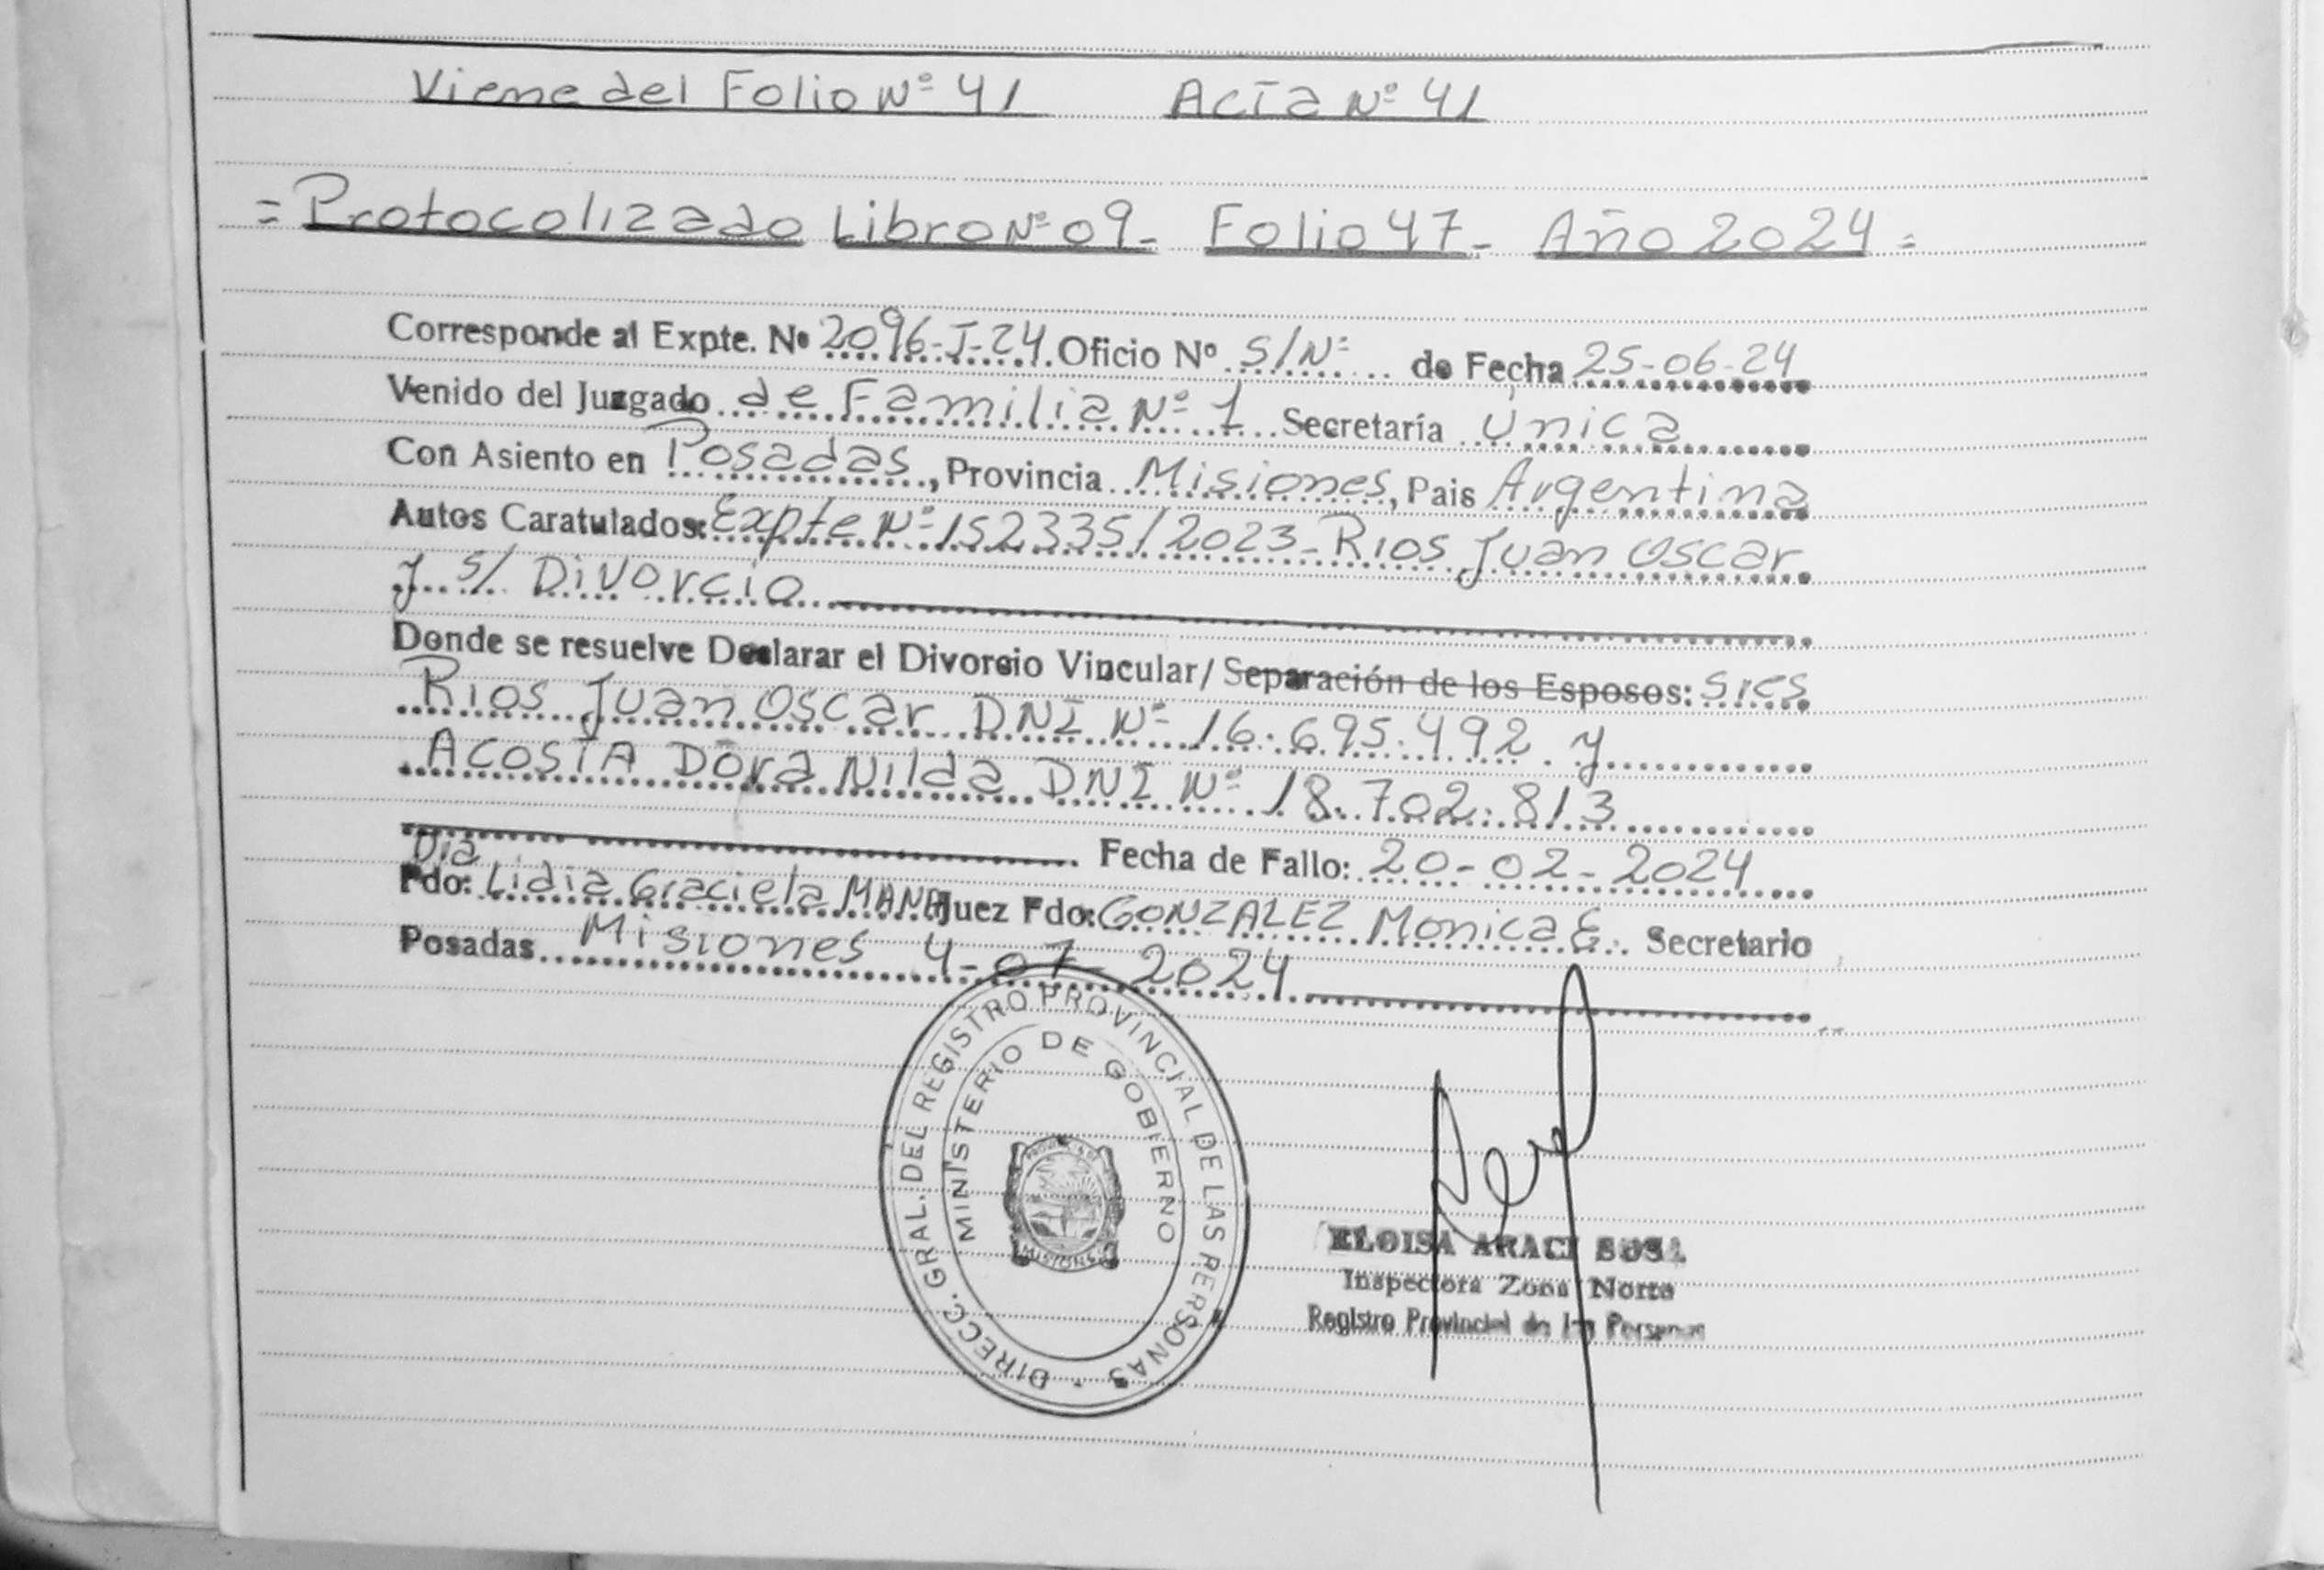 Viene del Folio Nº 41 Acta Nº 41
= Protocolizado Libro Nº 09- Folio 47- Año 2024 =
Corresponde al Expte. Nº 2096-J-24. Oficio Nº S/Nº de Fecha 25-06-24
Venido del Juzgado de Familia Nº 1 Secretaría Única
Con Asiento en Posadas, Provincia Misiones, Pais Argentina
Autos Caratulados: Expte Nº 152335/2023- Rios Juan Oscar
y s/ Divorcio
Donde se resuelve Declarar el Divorcio Vincular/ Separación de los Esposos: Sres
Rios Juan Oscar DNI Nº 16.695.492. y
ACOSTA Dora Nilda DNI Nº 18.702.813
Fecha de Fallo: 20-02-2024
Dra
Fdo: Lidia Graciela Juez Fdo: GONZALEZ Monica E. Secretario
Posadas Misiones 4-07-2024
DIRECC. GRAL. DEL REGISTRO PROVINCIAL DE LAS PERSONAS
MINISTERIO DE GOBIERNO
MISIONES
ELOISA ARACI
Inspectora Zona Norte
Registro Provincial de las Personas